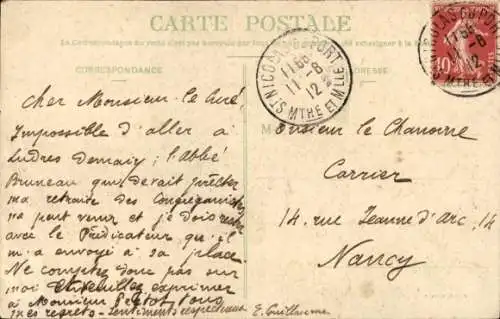 CARTE POSTALE
CORRESPONDANCE
ADRESSE
ST NICOLAS-DU-PORT
11 -8
12
MTHE ET MLLE
10
Cher Monsieur le Curé,
Impossible d'aller à
Ludres demain; l'abbé
Bruneau qui devait prêcher
ma retraite des Congréganistes
ne peut venir et je dois rester
avec le Prédicateur qu'il
m'a envoyé à sa place
Ne comptez donc pas sur
moi et veuillez exprimer
à Monsieur tous
mes regrets - Sentiments respectueux
E. Guillaume
Monsieur le Chanoine
Carrier
14, rue Jeanne d'Arc, 14
Nancy